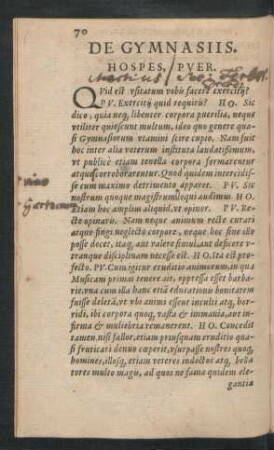 70
DE GYMNASIIS.
HOSPES, PVER.
QVid est vsitatum vobis facere exercitij?
PV. Exercitij quid requiris? HO. Sic
dico, quia neq; libenter corpora puerilia, neque
vtiliter quiescunt multum, ideo quo genere qua-
si Gymnasiorum vtamini scire cupio. Nam fuit
hoc inter alia veterum instituta laudatissimum,
vt publicè etiam tenella corpora formarentur
atque corroborarentur. Quod quidem intercidis-
se cum maximo detrimento apparet. PV. Sic
nostrum quoque magistrum loqui audimus. HO.
Etiam hoc amplius aliquid, vt opinor. PV. Re-
cte opinaris. Nam neque animum recte curari
atque fingi neglecto corpore, neque hoc sine illo
posse docet, itaq; aut valere simul, aut deficere v-
tranque disciplinam necesse est. HO. Ita est pro-
fecto. PV. Cum igitur eruditio animorum, in qua
Musicam primas tenere ait, oppressa esset barba-
rie, vna cum illa hanc etiã educationis bonitatem
fuisse deletã, vt vbi animi essent inculti atq; hor-
ridi, ibi corpora quoq; vasta & immania, aut in-
firma & muliebria remanerent. HO. Concedit
tamen, nisi fallor, etiam priusquam eruditio qua-
si fruticari denuo cœperit, vsurpasse nostros quoq;
homines, illosq; etiam veteres indoctos atq; bella-
tores multo magis, ad quos ne fama quidem ele-
gantiæ